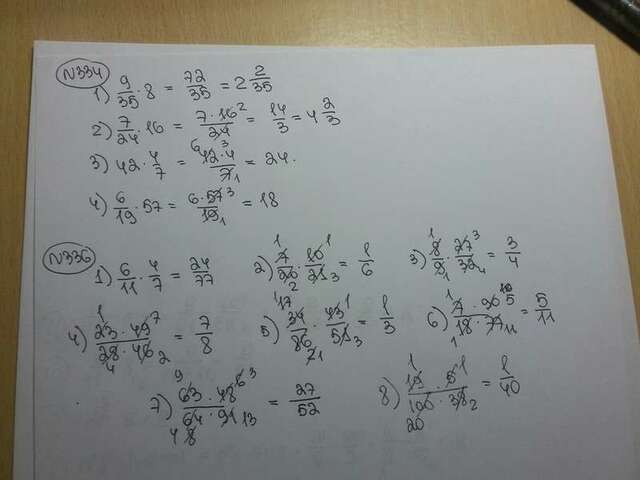 N334
1) 9/35 · 8 = 72/35 = 2 2/35
2) 7/24 · 16 = 7 · 16 2/24 = 14/3 = 4 2/3
3) 42 · 4/7 = 6 42 · 4/7 1 = 24.
4) 6/19 · 57 = 6 · 57 3/19 1 = 18
N336
1) 6/11 · 4/7 = 24/77 2) 1 7/20 2 · 10 1/21 3 = 1/6 3) 1 8/9 1 · 27 3/32 4 = 3/4
4) 1 23 · 49 7/28 4 · 46 2 = 7/8 5) 17 34/86 2 1 · 43 1/51 3 = 1/3 6) 1 7 · 90 10 5/1 18 · 77 11 = 5/11
7) 9 63 · 48 6 3/64 8 4 · 91 13 = 27/52 8) 1 19 · 5 1/100 20 · 38 2 = 1/40